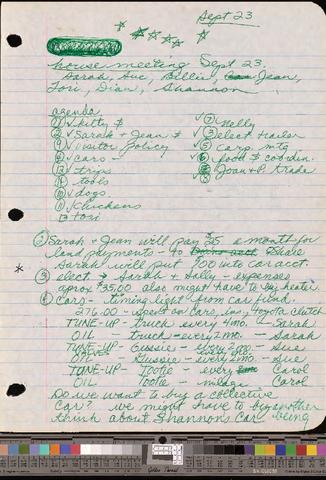 Sept 23
house meeting Sept 23.
Sarah, Sue, Billie, Jean,
Tori, Dian, Shannon
agenda
✓ kitty $
✓ Sarah + Jean $
✓ visitor policy
✓ cars -
trips
tools
✓ dogs
✓ chickens
13 Tori
✓ 7 Nelly
✓ 3 elect trailer
✓ 5 corp. mtg
✓ 6 food $ coordin.
✓ Joan + P. trade
8
② Sarah + Jean will pay $5 a month for
land payments - to share
Sarah will put $20 into car acct.
③ elect → Sarah + Sally - expenses
aprox $35.00 also might have to buy heater
④ cars - timing light from car fund
276.00 - spent on cars, ins, Toyota clutch
TUNE-UP - truck every 4mo. - Sarah
OIL - truck - every 2mo. - Sarah
TUNE-UP - Gussie - - Sue
OIL - Gussie - every 2mo. - Sue
TUNE-UP - Tootie - every Carol
OIL Tootie - milage Carol
Do we want to buy a collective
car? we might have to buy another
think about Shannon's car being